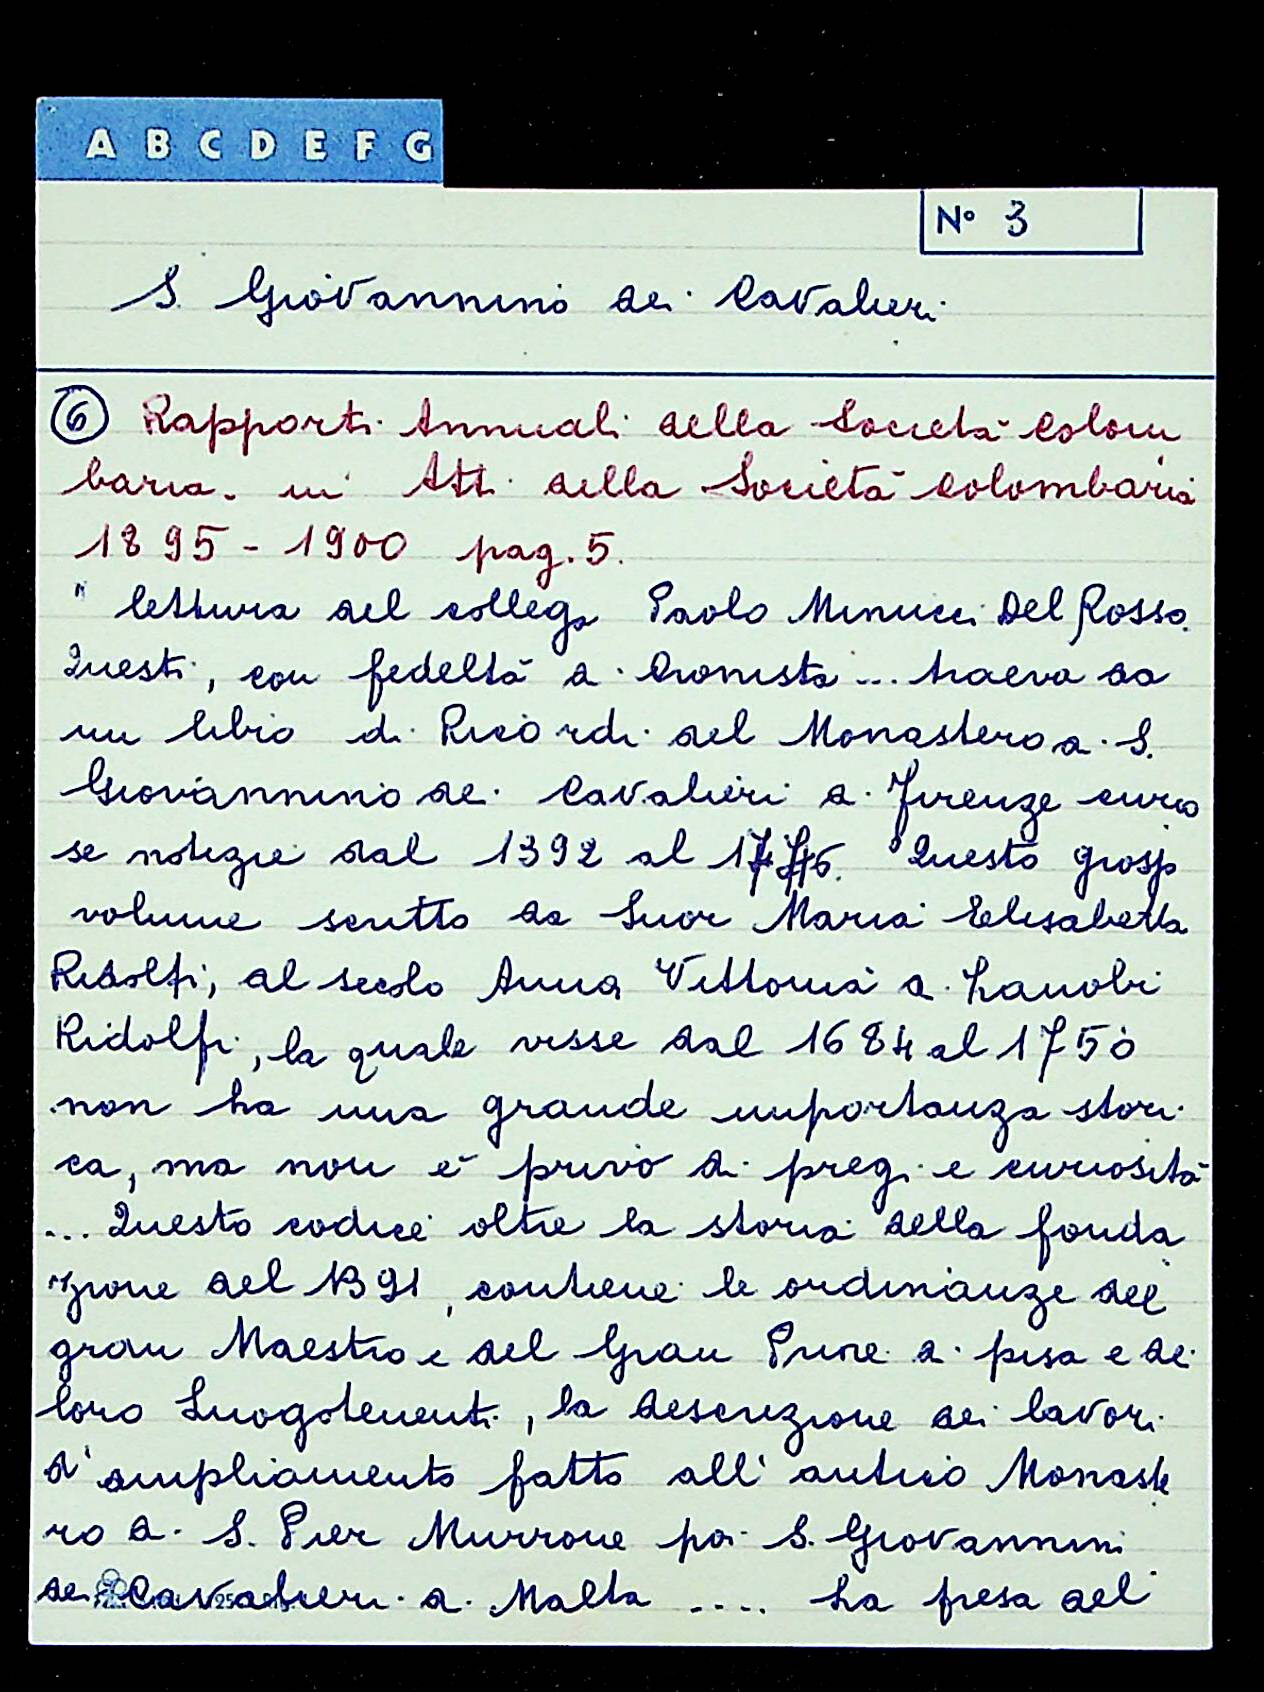 A B C D E F G
N° 3
S. Giovannino dei Cavalieri
6 Rapporti Annuali della Società Colom
baria. in Atti della Società Colombaria
1895-1900 pag. 5.
" lettura del collega Paolo Minucci Del Rosso.
Questi, con fedeltà di Cronista ... traeva da
un libro di Ricordi del Monastero di S.
Giovannino dei Cavalieri di Firenze curio
se notizie dal 1392 al 1776. Questo grosso
volume scritto da Suor Maria Elisabetta
Ridolfi, al secolo Anna Vittoria di Zanobi
Ridolfi, la quale visse dal 1684 al 1750
non ha una grande importanza stori
ca, ma non è privo di pregi e curiosità
... Questo codice oltre la storia della fonda
zione del 1391, contiene le ordinanze del
gran Maestro e del Gran Priore di pisa e dei
loro Luogotenenti, la descrizione dei lavori
d'ampliamento fatto all'antico Monaste
ro di S. Pier Murrone poi S. Giovannini
dei Cavalieri di Malta .... ha presa del